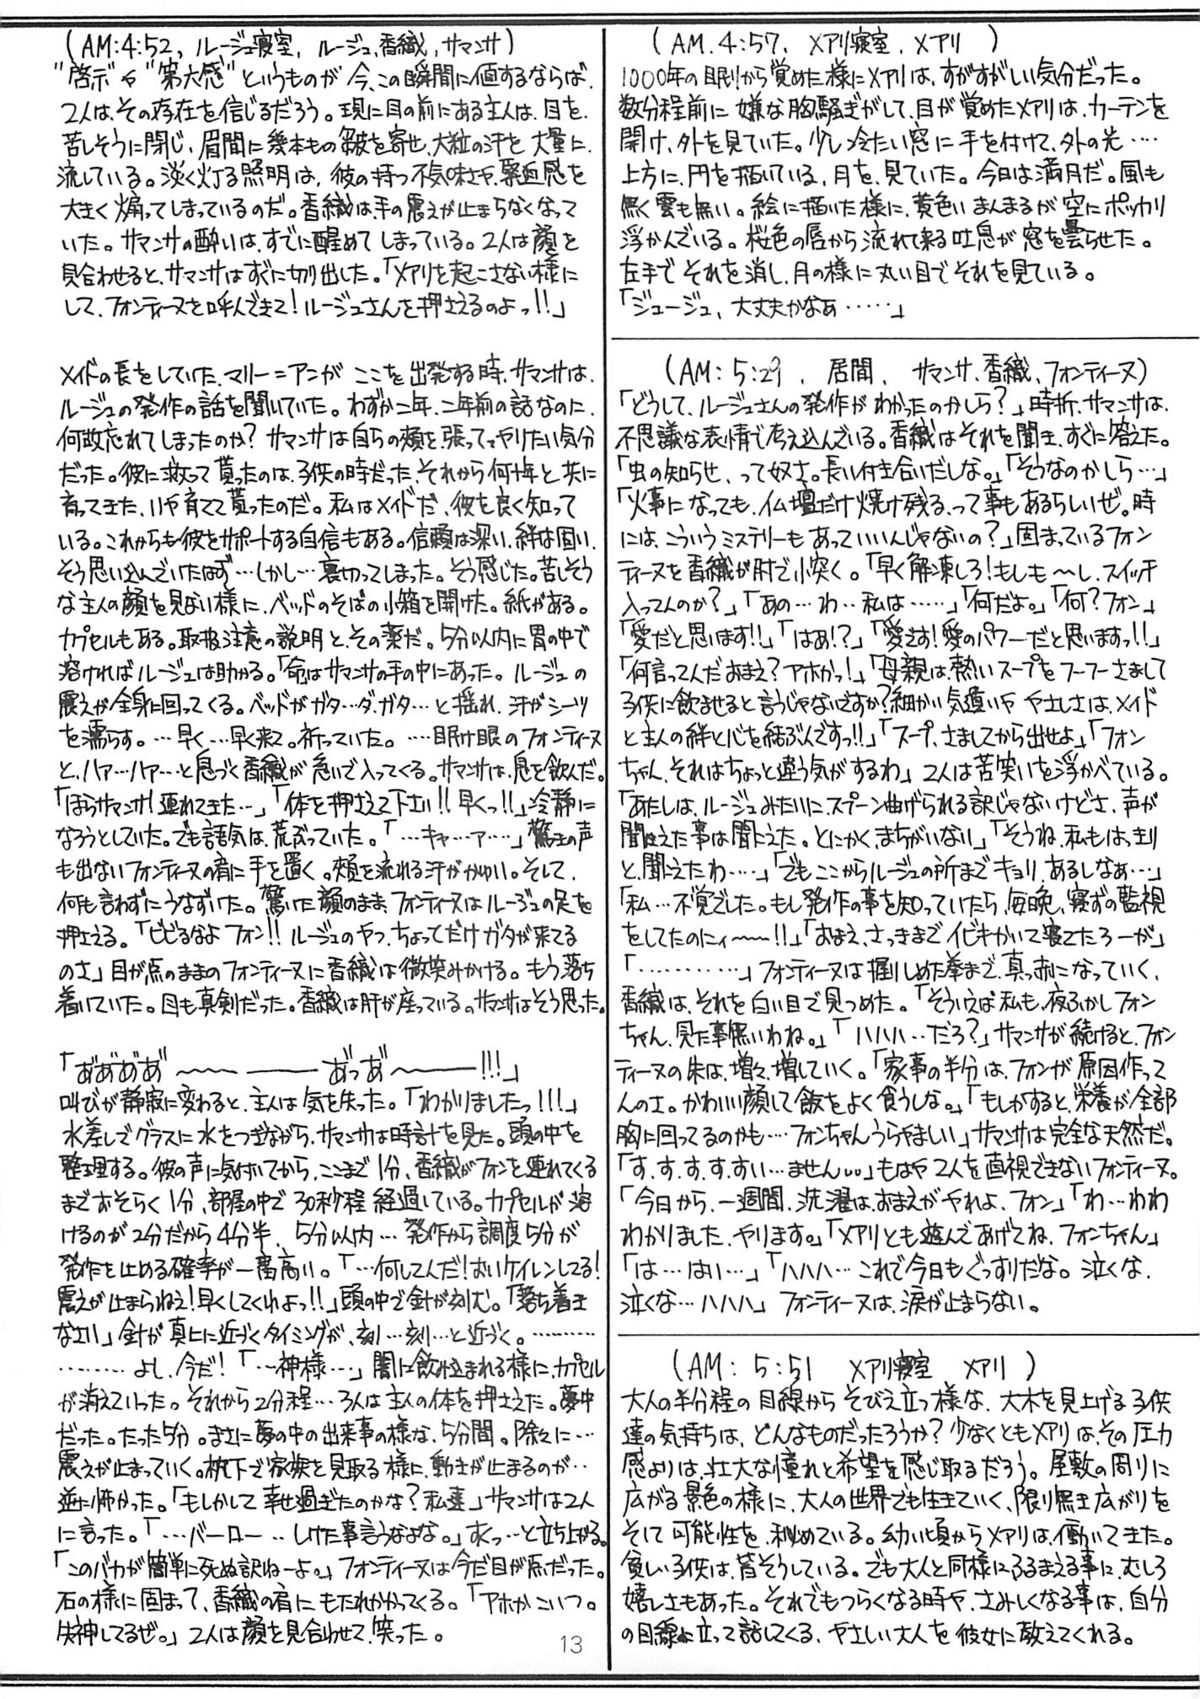 (AM:4:52, ルージュ寝室, ルージュ,香織,サマンサ)
"啓示"や"第六感"というものが今、この瞬間に値するならば、
2人はその存在を信じるだろう。現に目の前にある主人は、目を、
苦しそうに閉じ、眉間に幾本もの皺を寄せ、大粒の汗を大量に、
流している。淡く灯る照明は、彼の持つ不気味さや、緊迫感を
大きく煽ってしまっているのだ。香織は、手の震えが止まらなくなって
いた。サマンサの酔いは、すでに醒めてしまっている。2人は顔を
見合わせると、サマンサはすぐに切り出した。「メアリを起こさない様に
して、フォンティーヌを呼んできて!ルージュさんを押さえるのよっ!!」
メイドの長をしていた、マリー=アンがここを出発する時、サマンサは、
ルージュの発作の話を聞いていた。わずか二年、二年前の話なのに、
何故忘れてしまったのか?サマンサは自らの頬を張ってやりたい気分
だった。彼に救って貰ったのは、子供の時だった、それから何十年と、共に
育ってきた、いや育てて貰ったのだ。私はメイドだ、彼を良く知って
いる。これからも彼をサポートする自信もある。信頼は深い、絆は固い、
そう思い込んでいたはず…しかし…裏切ってしまった。そう感じた。苦しそう
な主人の顔を見ない様に、ベッドのそばの小箱を開けた。紙がある。
カプセルもある。取扱注意の説明と、その薬だ。5分以内に胃の中で
溶ければルージュは助かる。「命はサマンサの手の中にあった。ルージュの
震えが全身に回ってくる。ベッドがガタ…ダ、ガタ…と揺れ、汗がシーツ
を濡らす。…早く…早く来て。祈っていた。…眠け眼のフォンティーヌ
と、ハァ…ハァ…と息づく香織が急いで入ってくる。サマンサは、息を飲んだ。
「ほらサマンサ!連れてきた…」「体を押さえて下さい!!早くっ!!」冷静に
なろうとしていた。でも語気は、荒ぶっていた。「…キャ…ァ…」驚きの声
も出ないフォンティーヌの肩に手を置く。頬を流れる汗がかゆい。そして、
何も言わずにうなずいた。驚いた顔のまま、フォンティーヌはルージュの足を
押さえる。「ビビるなよフォン!!ルージュのヤツ、ちょっとだけガタが来てる
のさ」目が点のままのフォンティーヌに香織は微笑みかける。もう落ち
着いていた。目も真剣だった。香織は肝が座っている。サマンサはそう思った。
「あ゛あ゛あ゛あ゛〜〜 ――― あ゛っあ゛〜―――!!!」
叫びが静寂に変わると、主人は気を失った。「わかりましたっ!!!」
水差しでグラスに水をつぎながら、サマンサは時計を見た。頭の中を
整理する。彼の声に気付いてから、ここまで1分、香織がフォンを連れてくる
までおそらく1分、部屋の中で30秒程経過している。カプセルが溶
けるのが2分だから4分半、5分以内…発作から調度5分が
発作を止める確率が一番高い。「…何してんだ!おいケイレンしてる!
震えが止まらねえ!早くしてくれよっ!!」頭の中で針が刻む。「落ち着き
なさい」針が真上に近づくタイミングが、刻…刻…と近づく。…………
…………よし、今だ!「…神様…」闇に飲み込まれる様に、カプセル
が消えていった。それから2分程…3人は主人の体を押さえた。夢中
だった。たった5分。まさに夢の中の出来事の様な、5分間。徐々に…
震えが止まっていく。枕下で家族を見取る様に、動きが止まるのが…
逆に怖かった。「もしかして幸せ過ぎたのかな?私達」サマンサは2人
に言った。「…バーロー…しけた事言うなよな。」すくっ…と立ち上がる。
「このバカが簡単に死ぬ訳ねーよ。」フォンティーヌは今だ目が点だった。
石の様に固まって、香織の肩にもたれかかってくる。「アホかこいつ。
失神してるぜ。」2人は顔を見合わせて、笑った。
(AM.4:57. メアリ寝室、メアリ )
1000年の眠りから覚めた様にメアリは、すがすがしい気分だった。
数分程前に嫌な胸騒ぎがして、目が覚めたメアリは、カーテンを
開け、外を見ていた。少し冷たい窓に手を付けて、外の光…
上方に、円を描いている、月を、見ていた。今日は満月だ。風も
無く雲も無い。絵に描いた様に、黄色いまんまるが空にポッカリ
浮かんでいる。桜色の唇から流れて来る吐息が窓を曇らせた。
左手でそれを消し、月の様に丸い目でそれを見ている。
「ジュージュ、大丈夫かなぁ……」
(AM:5:29, 居間, サマンサ、香織、フォンティーヌ)
「どうして、ルージュさんの発作がわかったのかしら?」時折、サマンサは、
不思議な表情で考え込んでいる。香織はそれを聞き、すぐに答えた。
「虫の知らせ、って奴さ。長い付き合いだしな。」「そうなのかしら…」
「火事になっても、仏壇だけ焼け残る、って事もあるらしいぜ。時
には、こういうミステリーもあっていいんじゃないの?」固まっているフォン
ティーヌを香織が肘で小突く。「早く解凍しろ!もしも〜し、スイッチ
入ってんのか?」「あの…わ…私は……」「何だよ。」「何?フォン」
「愛だと思います!!」「はあ!?」「愛です!愛のパワーだと思いますっ!!」
「何言ってんだおまえ?アホかっ!」「母親は、熱いスープをフーフーさまして
子供に飲ませると言うじゃないですか?細かい気遣いややさしさは、メイド
と主人の絆と心を結ぶんですっ!!」「スープ、さましてから出せよ」「フォン
ちゃん、それはちょっと違う気がするわ」2人は苦笑いを浮かべている。
「あたしは、ルージュみたいにスプーン曲げられる訳じゃないけどさ、声が
聞こえた事は聞こえた。とにかく、まちがいない」「そうね、私もはっきり
と、聞こえたわ…」「でもここからルージュの所までキョリ、あるしなぁ…」
「私…不覚でした。もし発作の事を知っていたら、毎晩、寝ずの監視
をしてたのにィ〜〜!!」「おまえ、さっきまでイビキかいて寝てたろーが」
「…………」フォンティーヌは握りしめた拳まで、真っ赤になっていく、
香織は、それを白い目で見つめた。「そういえば私も、夜ふかしフォン
ちゃん、見た事無いわね。」「ハハハ…だろ?」サマンサが続けると、フォン
ティーヌの朱は、増え、増していく。「家事の半分は、フォンが原因作って
んのさ。かわいい顔して飯をよく食うしな。」「もしかすると、栄養が全部
胸に回ってるのかも…フォンちゃんうらやましい」サマンサは完全な天然だ。
「す、す、す、す、すい…ません…」もはや2人を直視できないフォンティーヌ。
「今日から、一週間、洗濯はおまえがやれよ、フォン」「わ…わわ
わかりました、やります。」「メアリとも遊んであげてね、フォンちゃん」
「は…はい…」「ハハハ…これで今日もぐっすりだな。泣くな、
泣くな…ハハハ」フォンティーヌは、涙が止まらない。
(AM: 5:51 メアリ寝室 メアリ )
大人の半分程の目線からそびえ立つ様な、大木を見上げる子供
達の気持ちは、どんなものだったろうか?少なくともメアリは、その圧力
感よりは、壮大な憧れと希望を感じ取るだろう。屋敷の周りに
広がる景色の様に、大人の世界でも生きていく、限り無き広がりを
そして可能性を、秘めている。幼い頃からメアリは、働いてきた。
貧しい子供は、皆そうしている。でも大人と同様にふるまえる事に、むしろ
嬉しさもあった。それでもつらくなる時や、さみしくなる事は、自分
の目線に立って話してくる、やさしい大人を彼女に教えてくれる。
13